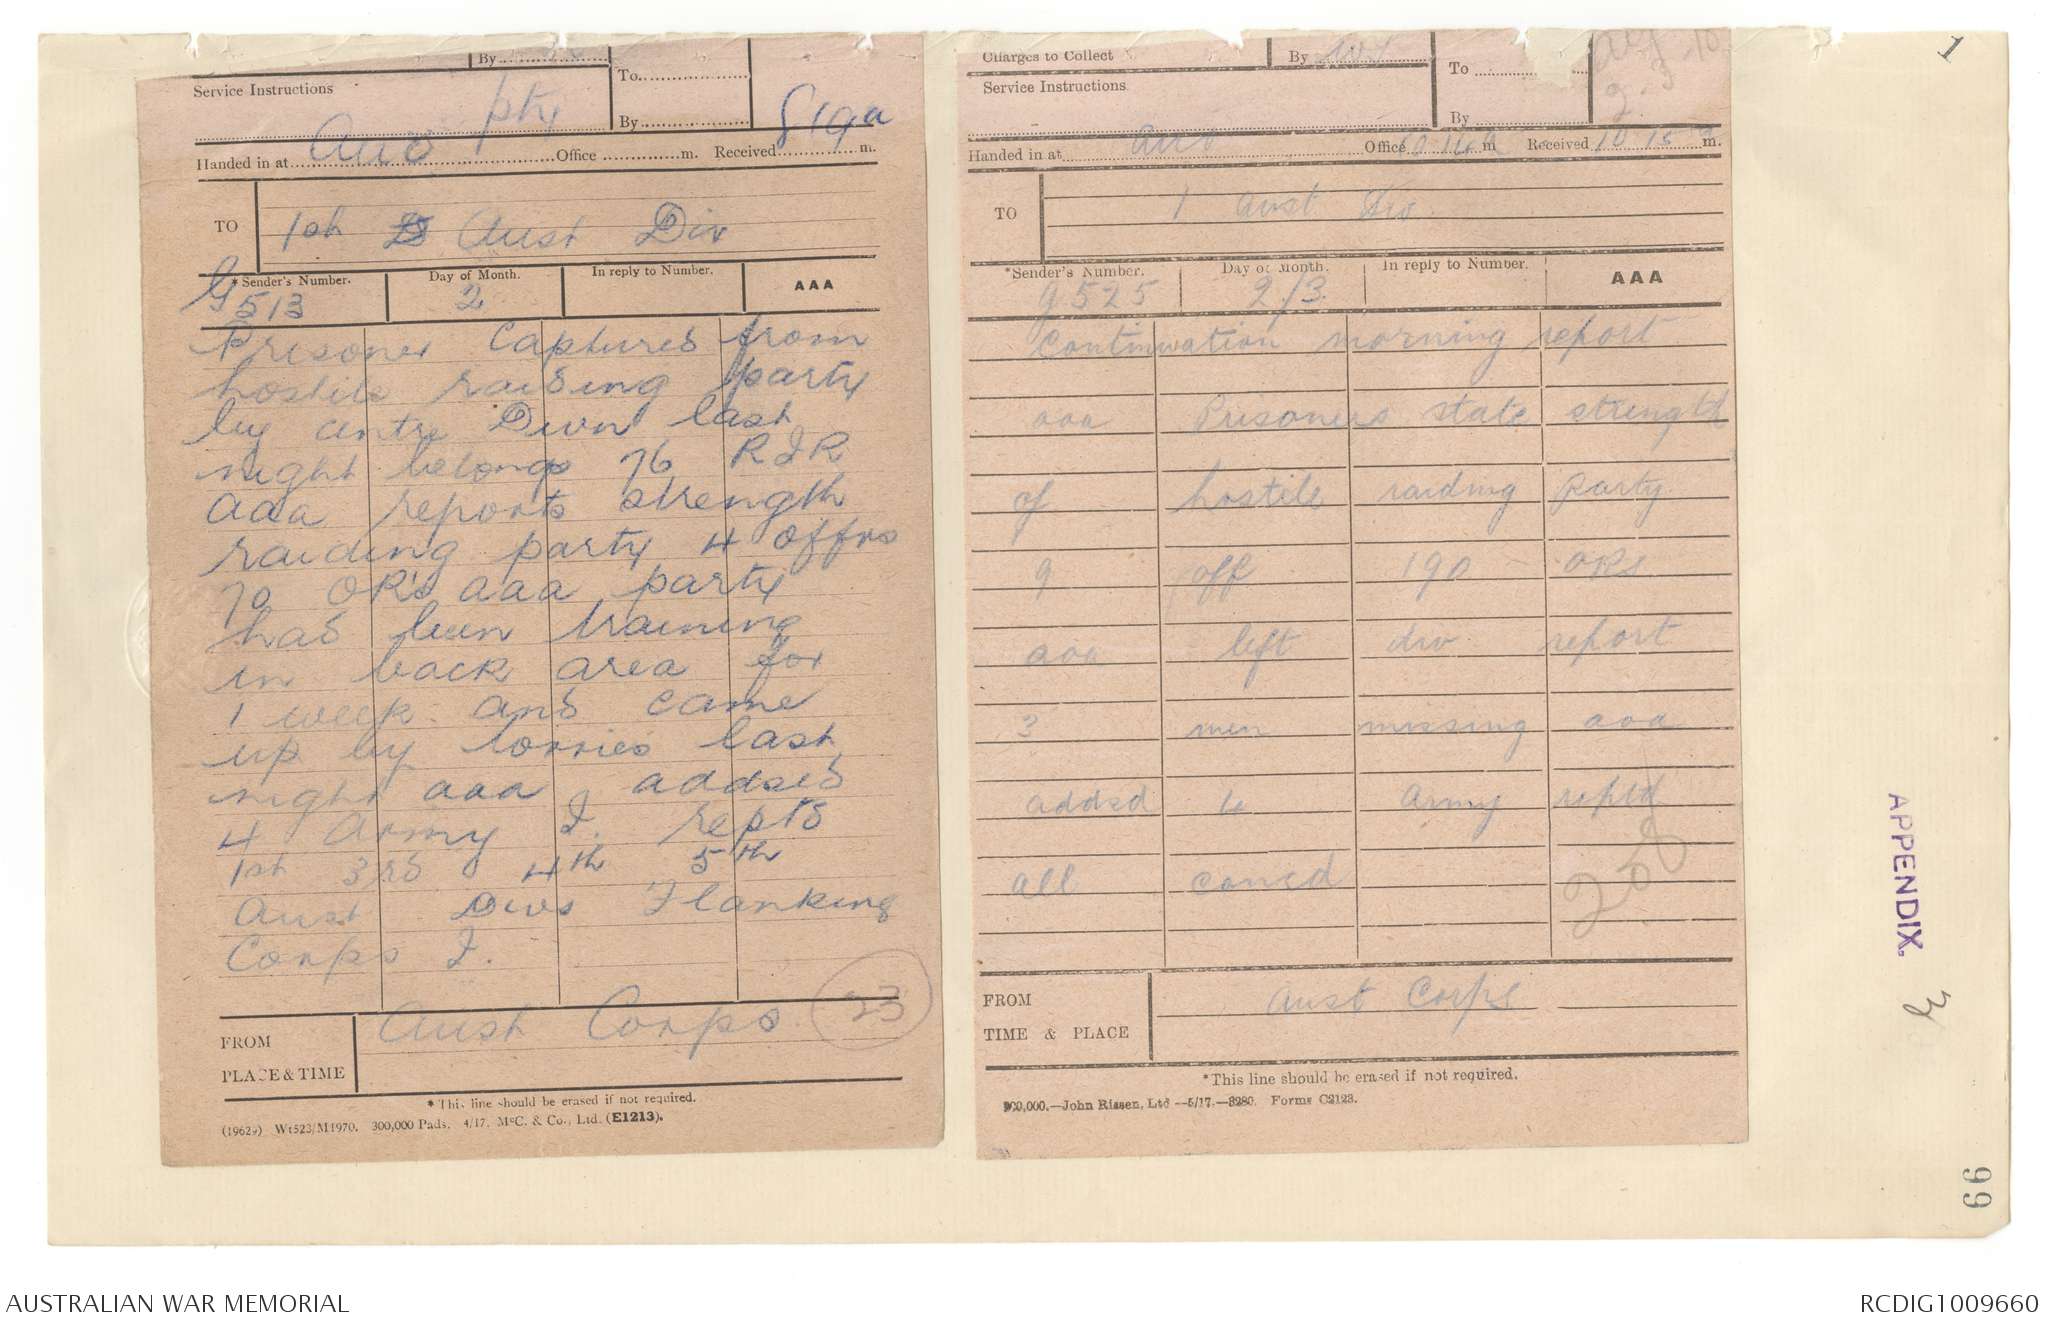 By
Service Instructions
pty
To
By
819a
Handed in at Aus Office m. Received m.
TO 1st Aust Div
*Sender's Number. Day of Month. In reply to Number. AAA
G513 2
Prisoner Captured from
hostile raiding party
by centre Divn last
night belongs 76 RIR
aaa reports strength
raiding party 4 offrs
70 OR's aaa party
has been training
in back area for
1 week and came
up by lorries last
night aaa addsed
4 Army I. reptd
1st 3rd 4th 5th
Aust Divs Flanking
Corps I.
23
FROM Aust Corps
PLACE & TIME
*This line should be erased if not required.
(19629) Wt523/M1970. 300,000 Pads. 4/17. McC. & Co., Ltd. (E1213).
Charges to Collect
By
Service Instructions
To
By
Handed in at Office m Received 10 15 m.
TO 1 Aust Div
*Sender's Number. Day of Month. In reply to Number. AAA
g 525 2/3
Continuation morning report
aaa Prisoners state strength
of hostile raiding party
9 off 190 ORs
aaa left div report
3 men missing aaa
addsd 4 Army reptd
all concd
FROM Aust Corps
TIME & PLACE
*This line should be erased if not required.
900,000.—John Rissen, Ltd —5/17.—3280. Forms C2123.
1
APPENDIX.
3
66
AUSTRALIAN WAR MEMORIAL
RCDIG1009660